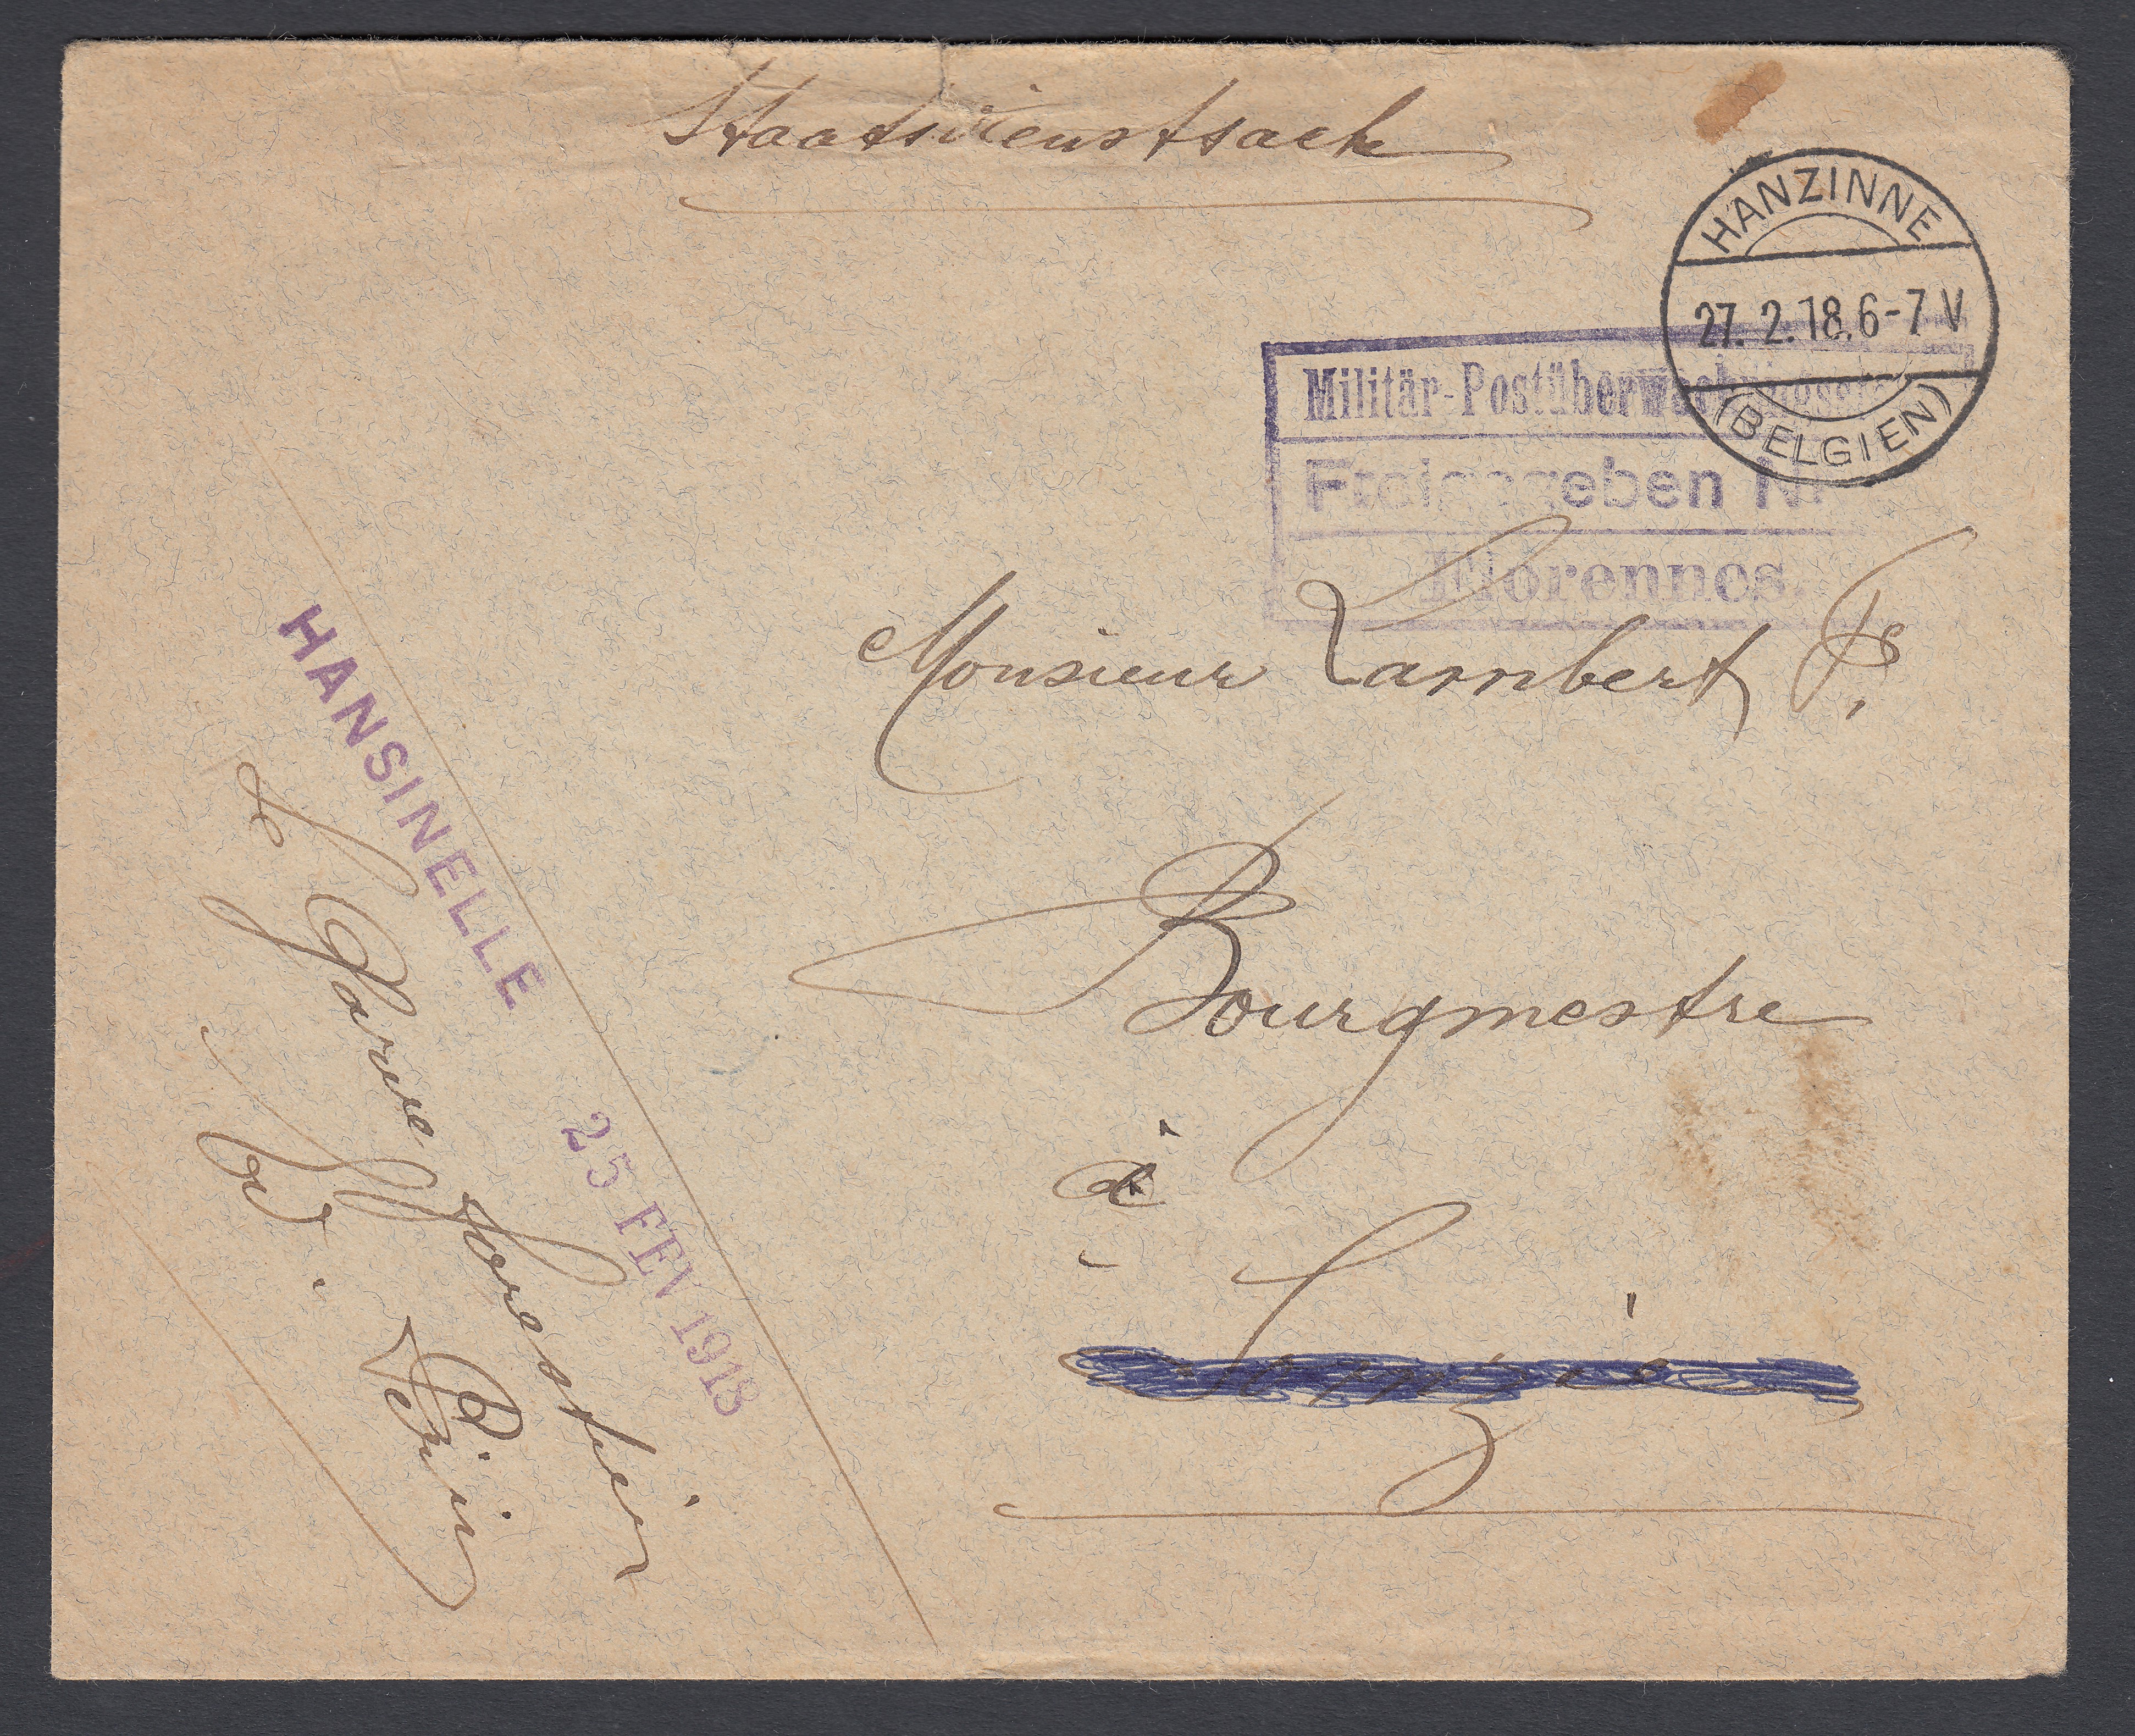 Staatsdienstsack
HANZINNE
27. 2. 18. 6-7 V
(BELGIEN)
Militär-Postüberwachungsst
Freigegeben Nr
Florennes.
Monsieur Lambert
Bourgmestre
à
HANSINELLE
25 FEV 1918
Le Garde Forestier